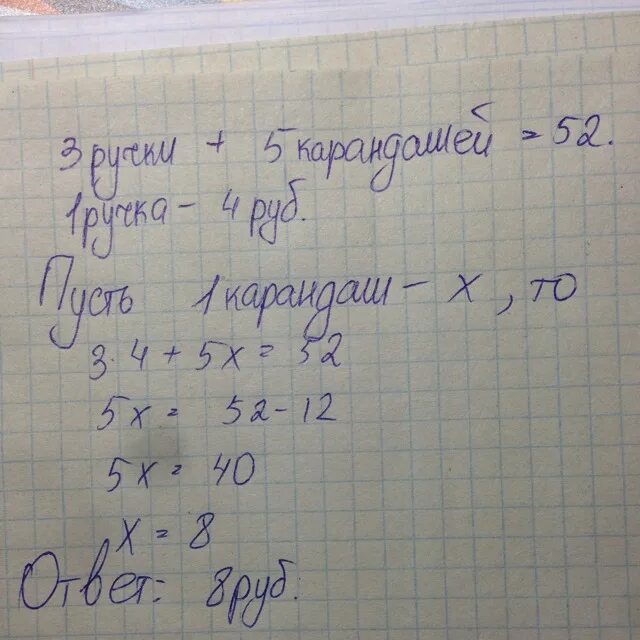 3 ручки + 5 карандашей = 52.
1 ручка - 4 руб.
Пусть 1 карандаш - x, то
3·4 + 5x = 52
5x = 52-12
5x = 40
x = 8
Ответ: 8 руб.